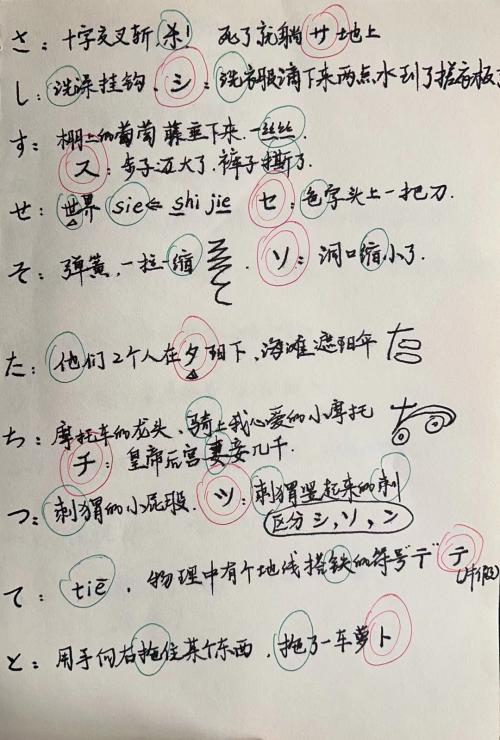 さ：十字交叉斩，杀！ 死了就躺サ地上
し：洗澡挂钩、シ：洗衣服滴下来两点水到了搓衣板了
す：棚上的葡萄藤垂下来，一丝丝.
ス：步子迈大了，裤子撕了.
せ：世界 sie ⇐ shi jie セ：色字头上一把刀.
そ：弹簧，一拉一缩 . ソ：洞口缩小了.
た：他们2个人在夕阳下，海滩遮阳伞
ち：摩托车的龙头、骑上我心爱的小摩托
チ：皇帝后宫妻妾几千.
つ：刺猬的小屁股. ツ：刺猬竖起来的刺
区分シ，ソ，ン
て：tiē ，物理中有个地线搭铁的符号"〒" テ
と：用手向右拖住某个东西，拖了一车萝卜